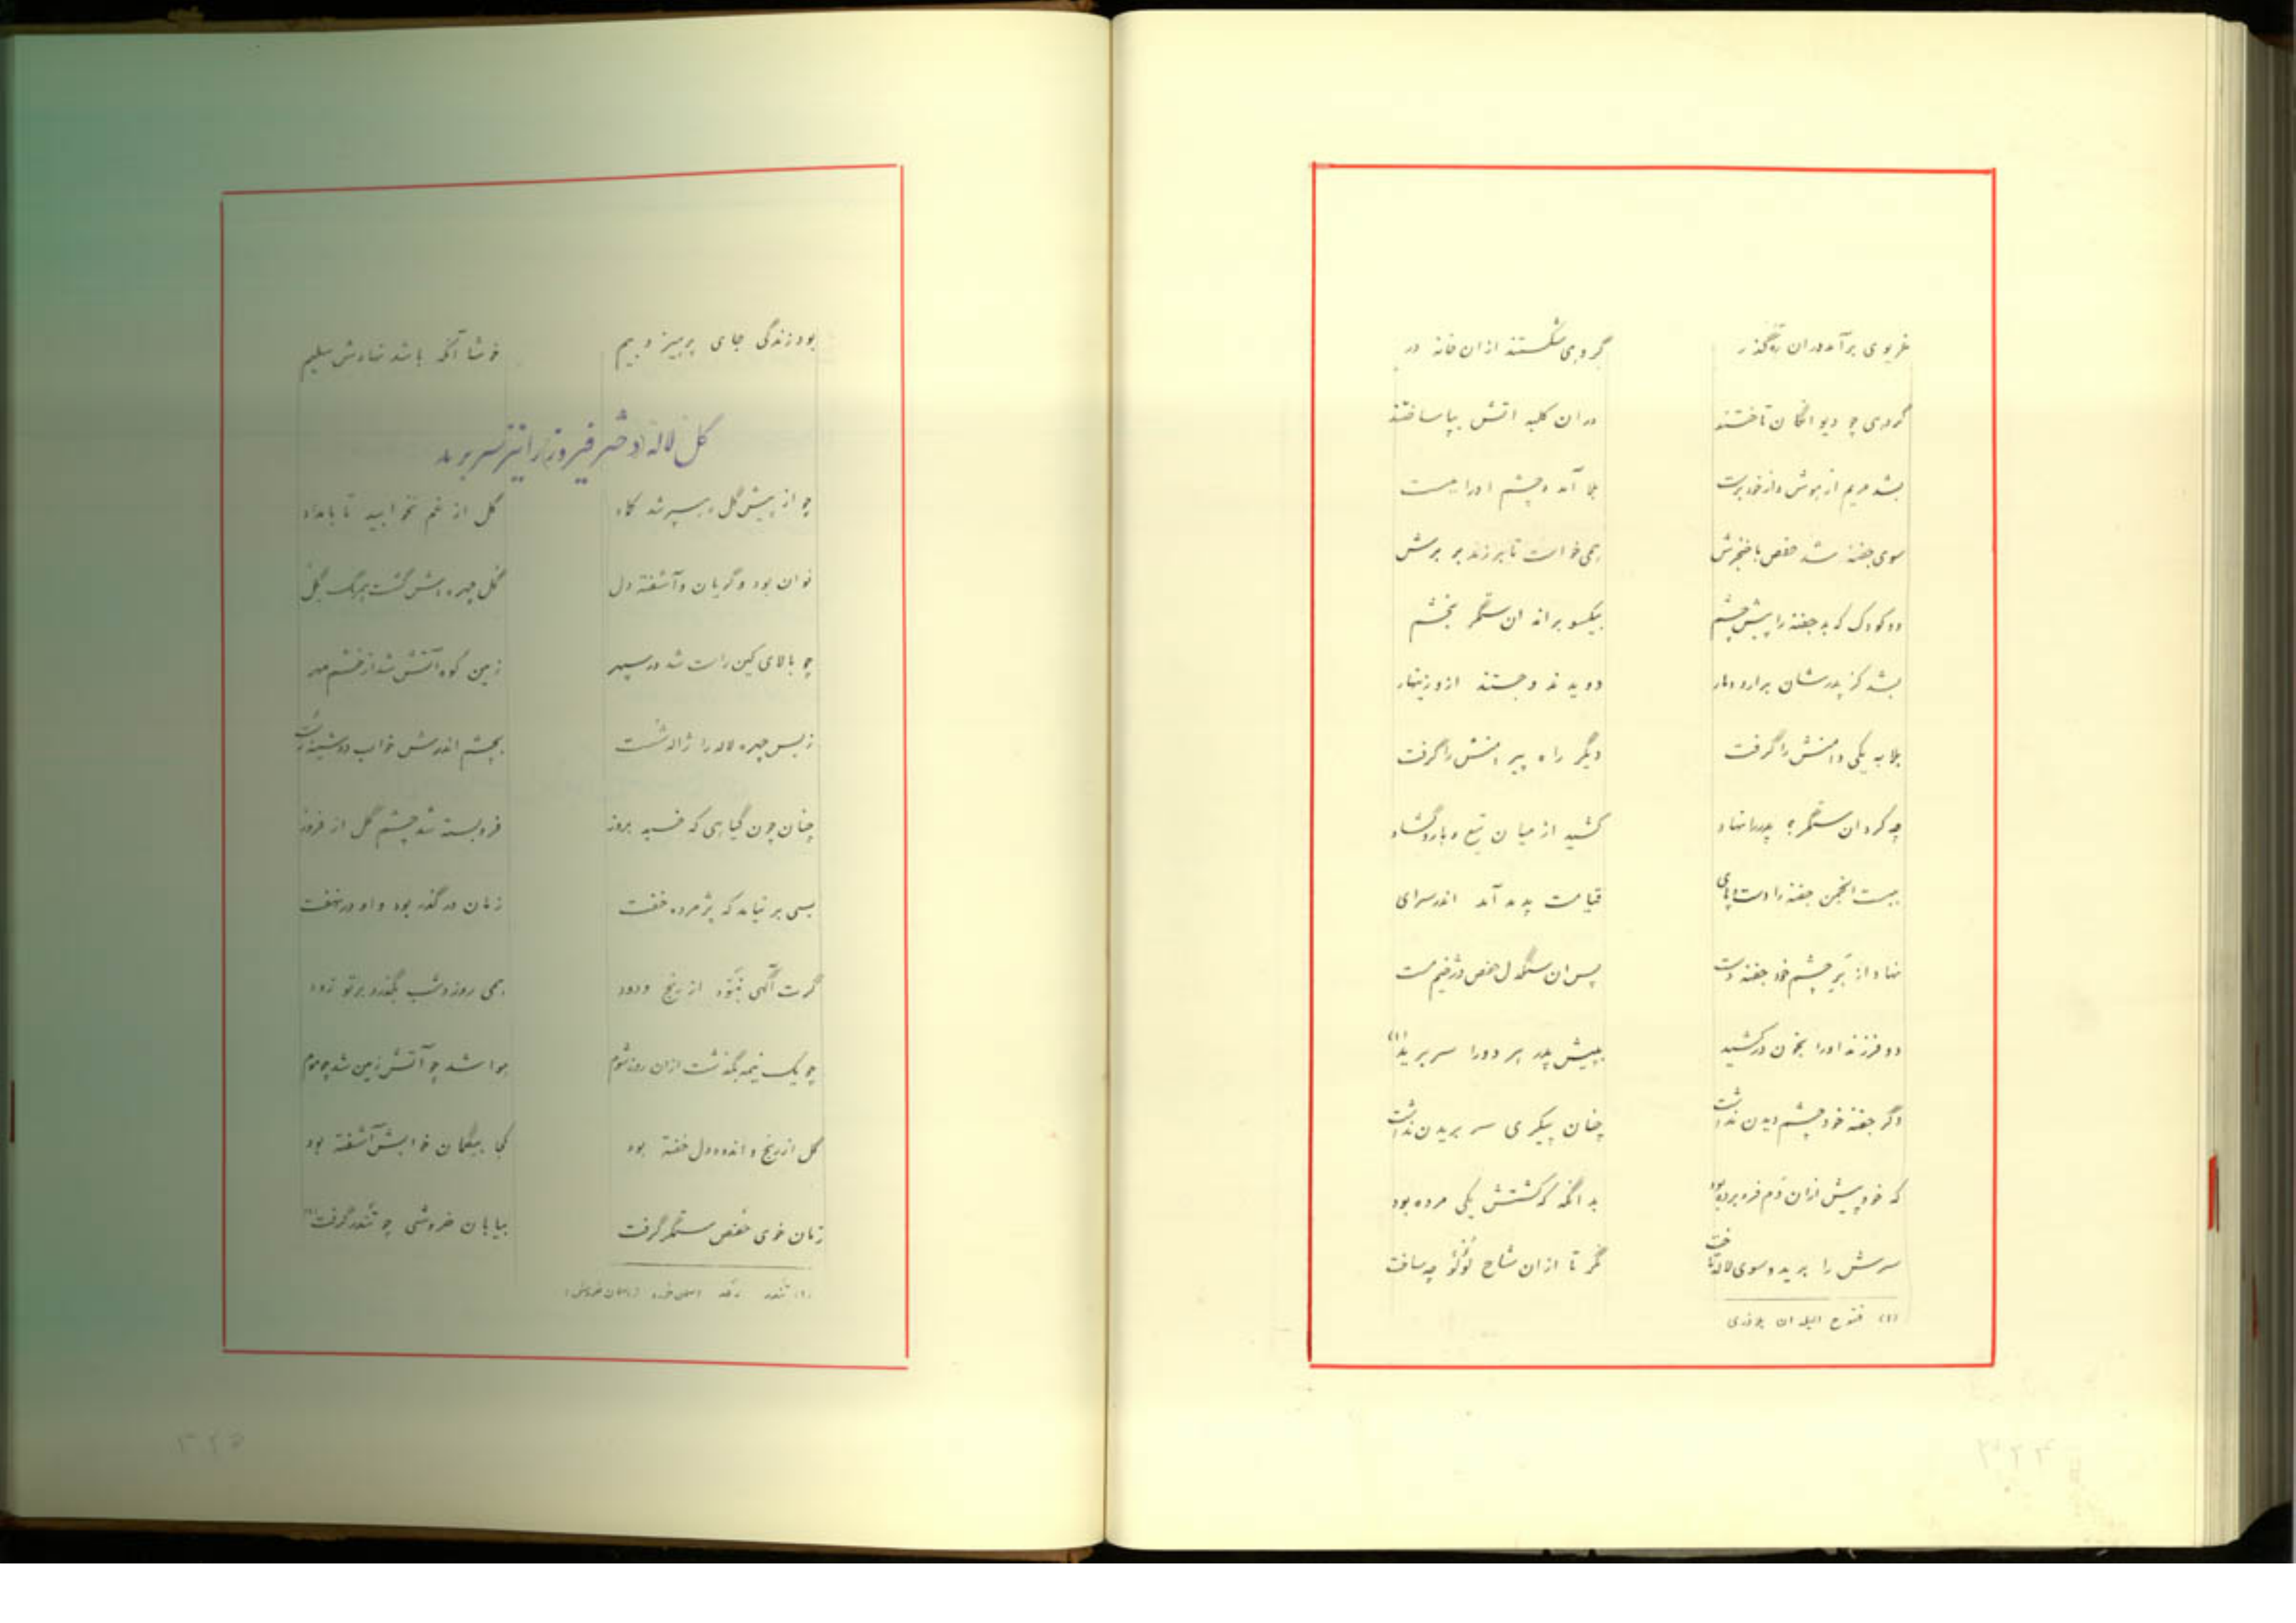 غریوی برآمد دران رهگذر گروهی شکستند ازان خانه در
گروهی چو دیوانگان تاختند دران کلبه اتش بپا ساختند
بشد مریم از هوش و از خود برست بلا آمد و چشم اورا ببست
سوی جفنه شد حفص با خنجرش همی خواست تا بر زند بر برش
دو کودک که بد جفنه را پیش چشم بیکسو براند ان ستمگر بخشم
بشد کز پدرشان برارد دمار دویدند و جستند ازو زینهار
بلابه یکی دامنش را گرفت دیگر راه پیراهنش را گرفت
چه کرد ان ستمگر؟ پدر را نهاد کشید از میان تیغ و بازو گشاد
ببست انجمن جفنه را دست و پای قیامت پدید آمد اندر سرای
نهاد از بر چشم خود جفنه دست پس ان سنگدل حفص دژخیم مست
دو فرزند اورا بخون درکشید بپیش پدر هر دورا سر برید (۱)
دگر جفنه خود چشم دیدن نداشت چنان پیکری سر بریدن نداشت
که خود پیش ازان دم فرو برده بود بدانگه که کشتش یکی مرده بود
سرش را برید و سوی لاله تاخت نگر تا ازان شاخ لؤلؤ چه ساخت
(۱) فتوح البلدان بلاذری
۳۲۴
بود زندگی جای پرهیز و بیم خوشا آنکه باشد نهادش سلیم
گل لاله دختر فیروز را نیز سر برید
چو از پیش گل رهسپر شد گل از غم نخوابید تا بامداد
نوان بود و گریان و آشفته دل گل چهره اش گشت همرنگ گل
چو بالای کین راست شد در سپهر زمین کوه آتش شد از خشم مهر
ز بس چهره لاله را ژاله شست بچشم اندرش خواب دوشینه رست
چنان چون گیاهی که خسبد بروز فرو بسته شد چشم گل از فروز
بسی بر نیامد که پژمرده خفت زمان در گذر بود و او در نهفت
گرت آگهی نبود از رنج و دود همی روز و شب بگذرد بر تو زود
چو یک نیمه بگذشت ازان روز شوم هوا شد چو آتش زمین شد چو موم
گل از رنج و اندوه دل خفته بود کجا بیگمان خوابش آشفته بود
زمان خوی حفص ستمگر گرفت بیابان خروشی چو تندر گرفت (۱)
(۱) تندر رعد
۳۲۵